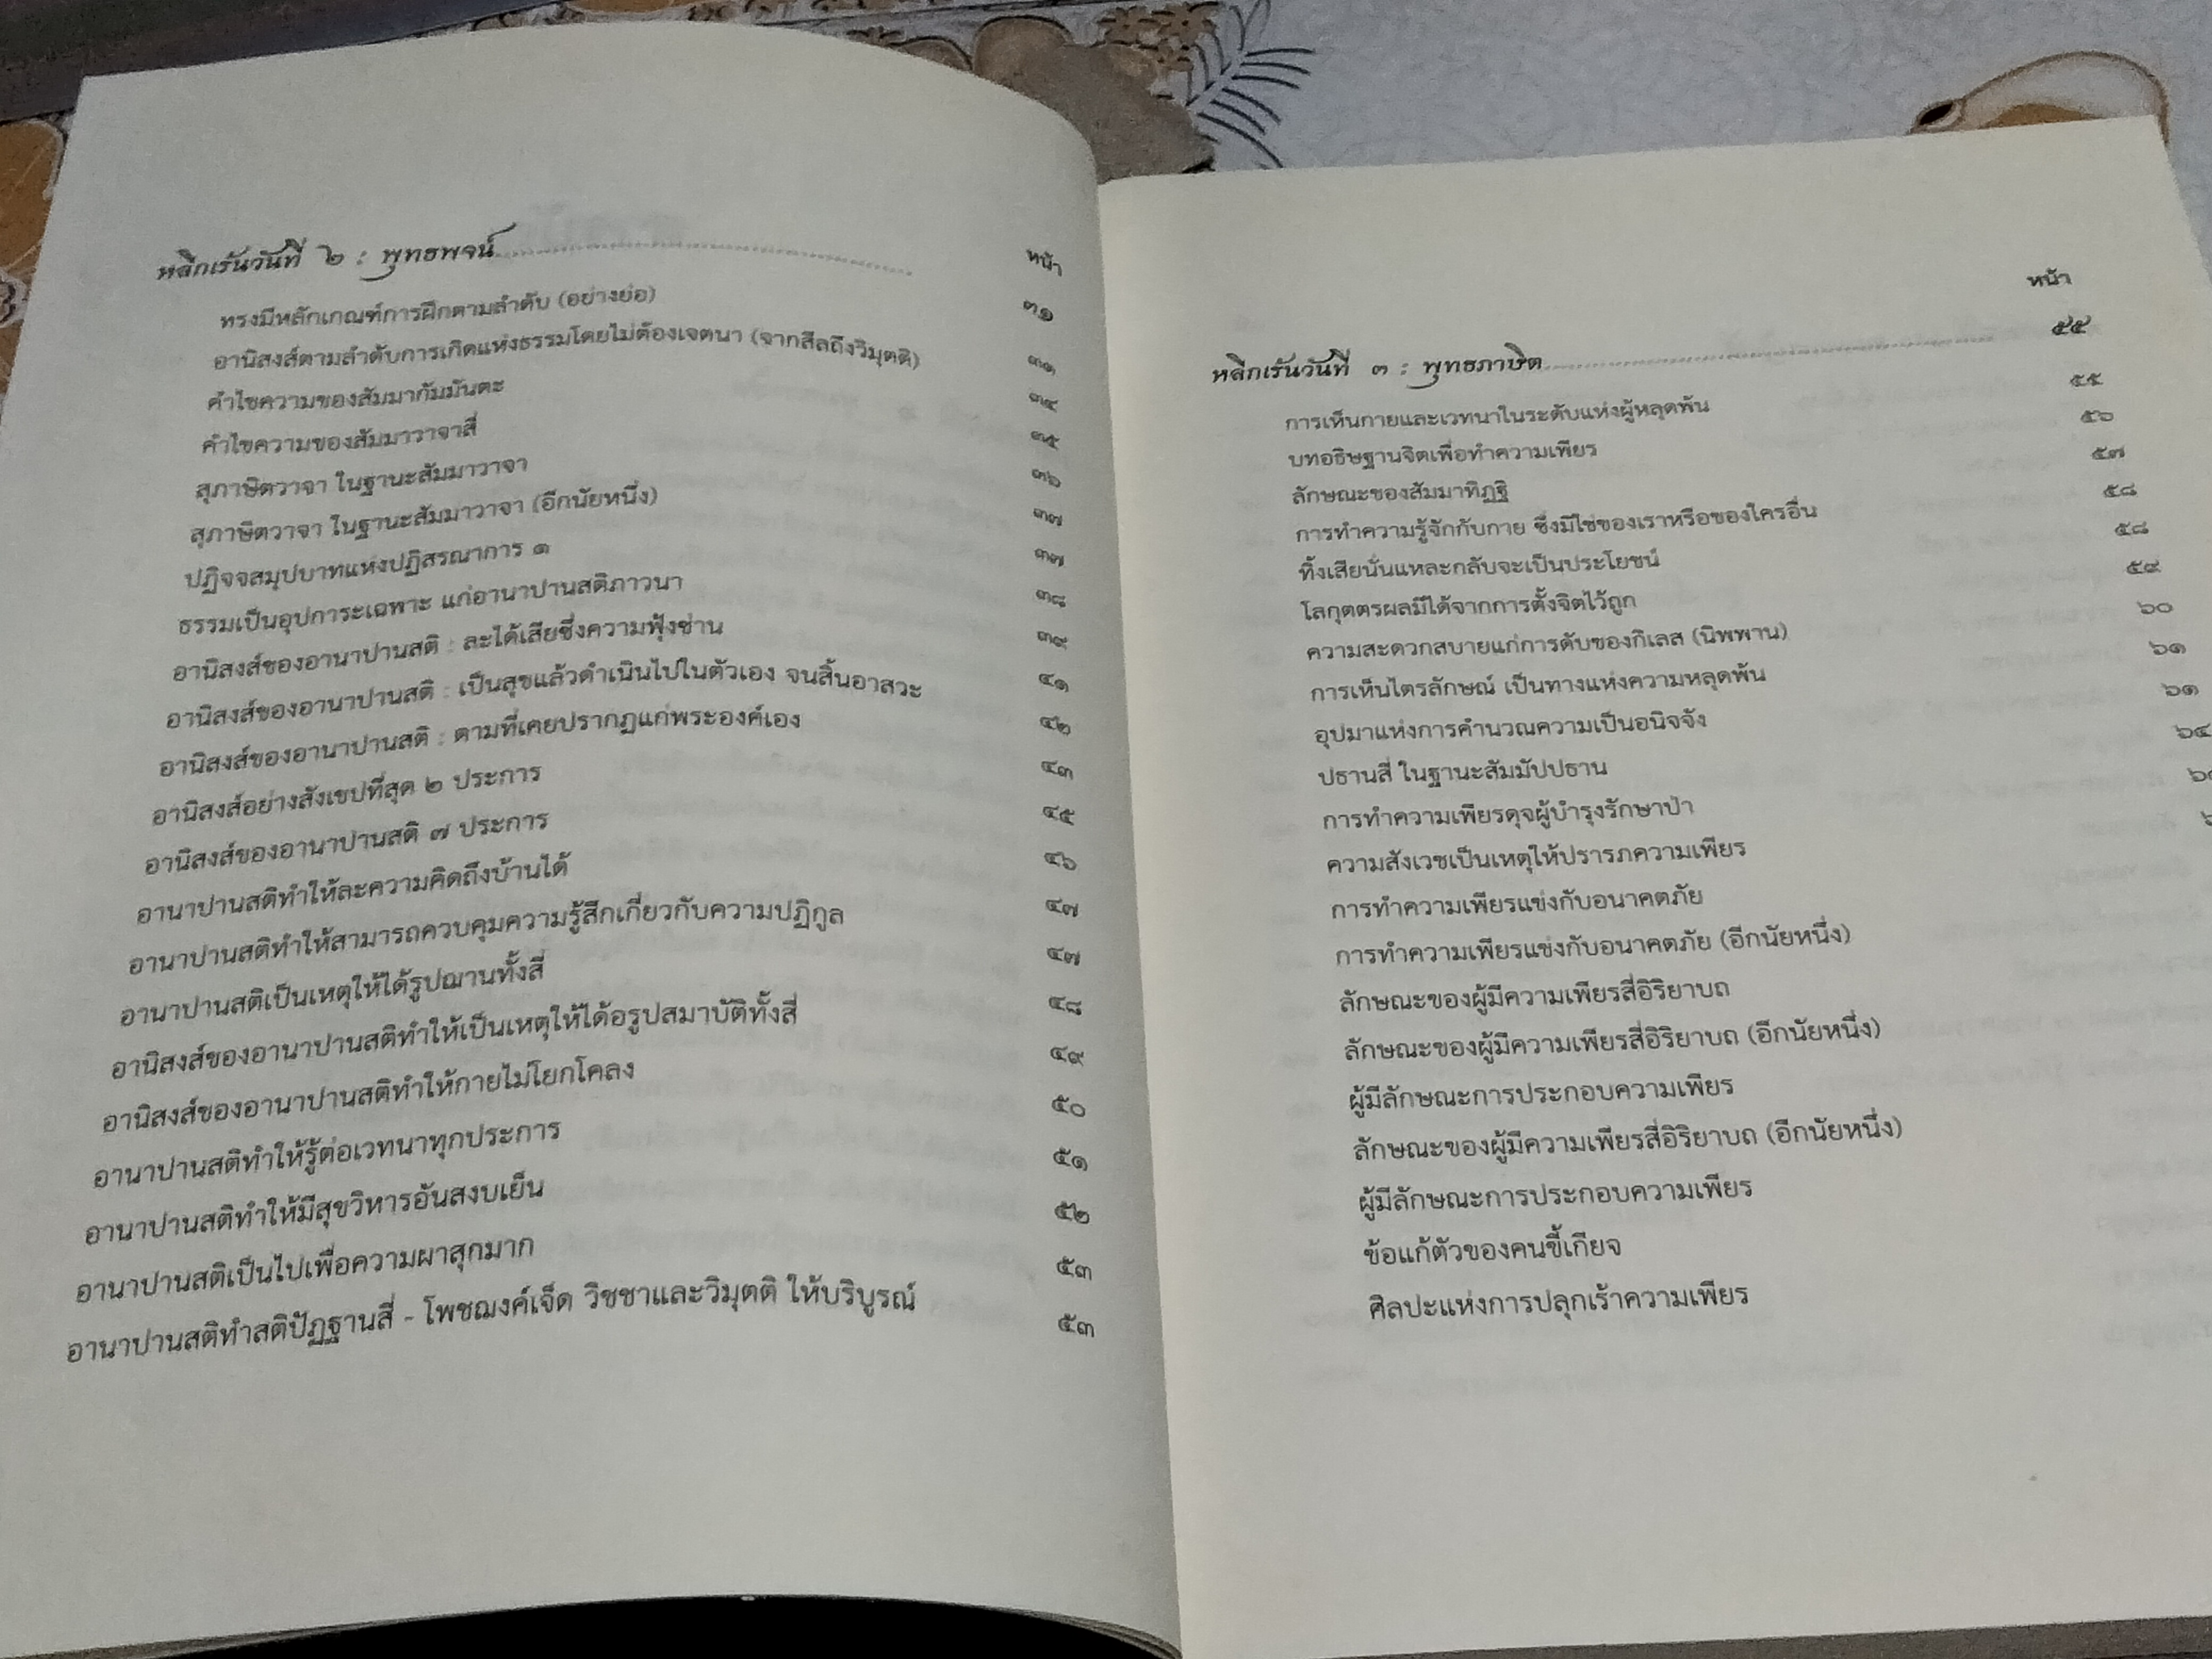 หน้า
หลีกเร้นวันที่ ๒ : พุทธพจน์ ๓๑
ทรงมีหลักเกณฑ์การฝึกตามลำดับ (อย่างย่อ) ๓๑
อานิสงส์ตามลำดับการเกิดแห่งธรรมโดยไม่ต้องเจตนา (จากสีลถึงวิมุตติ) ๓๔
คำไขความของสัมมากัมมันตะ ๓๕
คำไขความของสัมมาวาจาสี่ ๓๖
สุภาษิตวาจา ในฐานะสัมมาวาจา ๓๗
สุภาษิตวาจา ในฐานะสัมมาวาจา (อีกนัยหนึ่ง) ๓๗
ปฏิจจสมุปบาทแห่งปฏิสรณาการ ๑ ๓๘
ธรรมเป็นอุปการะเฉพาะ แก่อานาปานสติภาวนา ๓๙
อานิสงส์ของอานาปานสติ : ละได้เสียซึ่งความฟุ้งซ่าน ๔๑
อานิสงส์ของอานาปานสติ : เป็นสุขแล้วดำเนินไปในตัวเอง จนสิ้นอาสวะ ๔๒
อานิสงส์ของอานาปานสติ : ตามที่เคยปรากฏแก่พระองค์เอง ๔๓
อานิสงส์อย่างสังเขปที่สุด ๒ ประการ ๔๕
อานิสงส์ของอานาปานสติ ๗ ประการ ๔๖
อานาปานสติทำให้ละความคิดถึงบ้านได้ ๔๗
อานาปานสติทำให้สามารถควบคุมความรู้สึกเกี่ยวกับความปฏิกูล ๔๗
อานาปานสติเป็นเหตุให้ได้รูปฌานทั้งสี่ ๔๘
อานิสงส์ของอานาปานสติทำให้เป็นเหตุให้ได้อรูปสมาบัติทั้งสี่ ๔๙
อานิสงส์ของอานาปานสติทำให้กายไม่โยกโคลง ๕๐
อานาปานสติทำให้รู้ต่อเวทนาทุกประการ ๕๑
อานาปานสติทำให้มีสุขวิหารอันสงบเย็น ๕๒
อานาปานสติเป็นไปเพื่อความผาสุกมาก ๕๓
อานาปานสติทำสติปัฏฐานสี่ - โพชฌงค์เจ็ด วิชชาและวิมุตติ ให้บริบูรณ์ ๕๓
หน้า
หลีกเร้นวันที่ ๓ : พุทธภาษิต ๕๕
การเห็นกายและเวทนาในระดับแห่งผู้หลุดพ้น ๕๕
บทอธิษฐานจิตเพื่อทำความเพียร ๕๖
ลักษณะของสัมมาทิฏฐิ ๕๗
การทำความรู้จักกับกาย ซึ่งมิใช่ของเราหรือของใครอื่น ๕๘
ทิ้งเสียนั่นแหละกลับจะเป็นประโยชน์ ๕๘
โลกุตตรผลมีได้จากการตั้งจิตไว้ถูก ๕๙
ความสะดวกสบายแก่การดับของกิเลส (นิพพาน) ๖๐
การเห็นไตรลักษณ์ เป็นทางแห่งความหลุดพ้น ๖๑
อุปมาแห่งการคำนวณความเป็นอนิจจัง ๖๑
ปธานสี่ ในฐานะสัมมัปปธาน ๖๔
การทำความเพียรดุจผู้บำรุงรักษาป่า
ความสังเวชเป็นเหตุให้ปรารภความเพียร
การทำความเพียรแข่งกับอนาคตภัย
การทำความเพียรแข่งกับอนาคตภัย (อีกนัยหนึ่ง)
ลักษณะของผู้มีความเพียรสี่อิริยาบถ
ลักษณะของผู้มีความเพียรสี่อิริยาบถ (อีกนัยหนึ่ง)
ผู้มีลักษณะการประกอบความเพียร
ลักษณะของผู้มีความเพียรสี่อิริยาบถ (อีกนัยหนึ่ง)
ผู้มีลักษณะการประกอบความเพียร
ข้อแก้ตัวของคนขี้เกียจ
ศิลปะแห่งการปลุกเร้าความเพียร